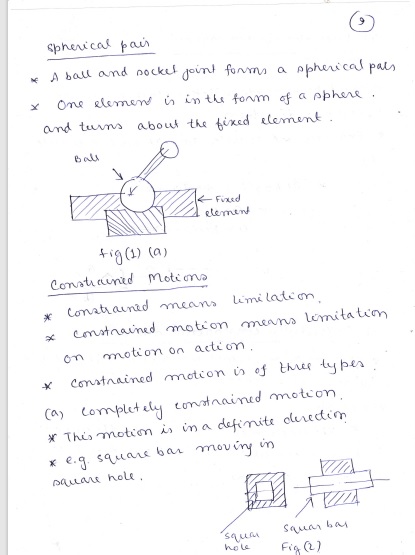 9
Spherical pair
* A ball and socket joint forms a spherical pair
* One element is in the form of a sphere.
and turns about the fixed element.
Ball
← Fixed
element
fig(1) (a)
Constrained Motions
* Constrained means limitation.
* constrained motion means limitation
on motion or action.
* constrained motion is of three types.
(a) completely constrained motion.
* This motion is in a definite direction
* e.g. square bar moving in
square hole.
squar
hole
squar bar
Fig(2)